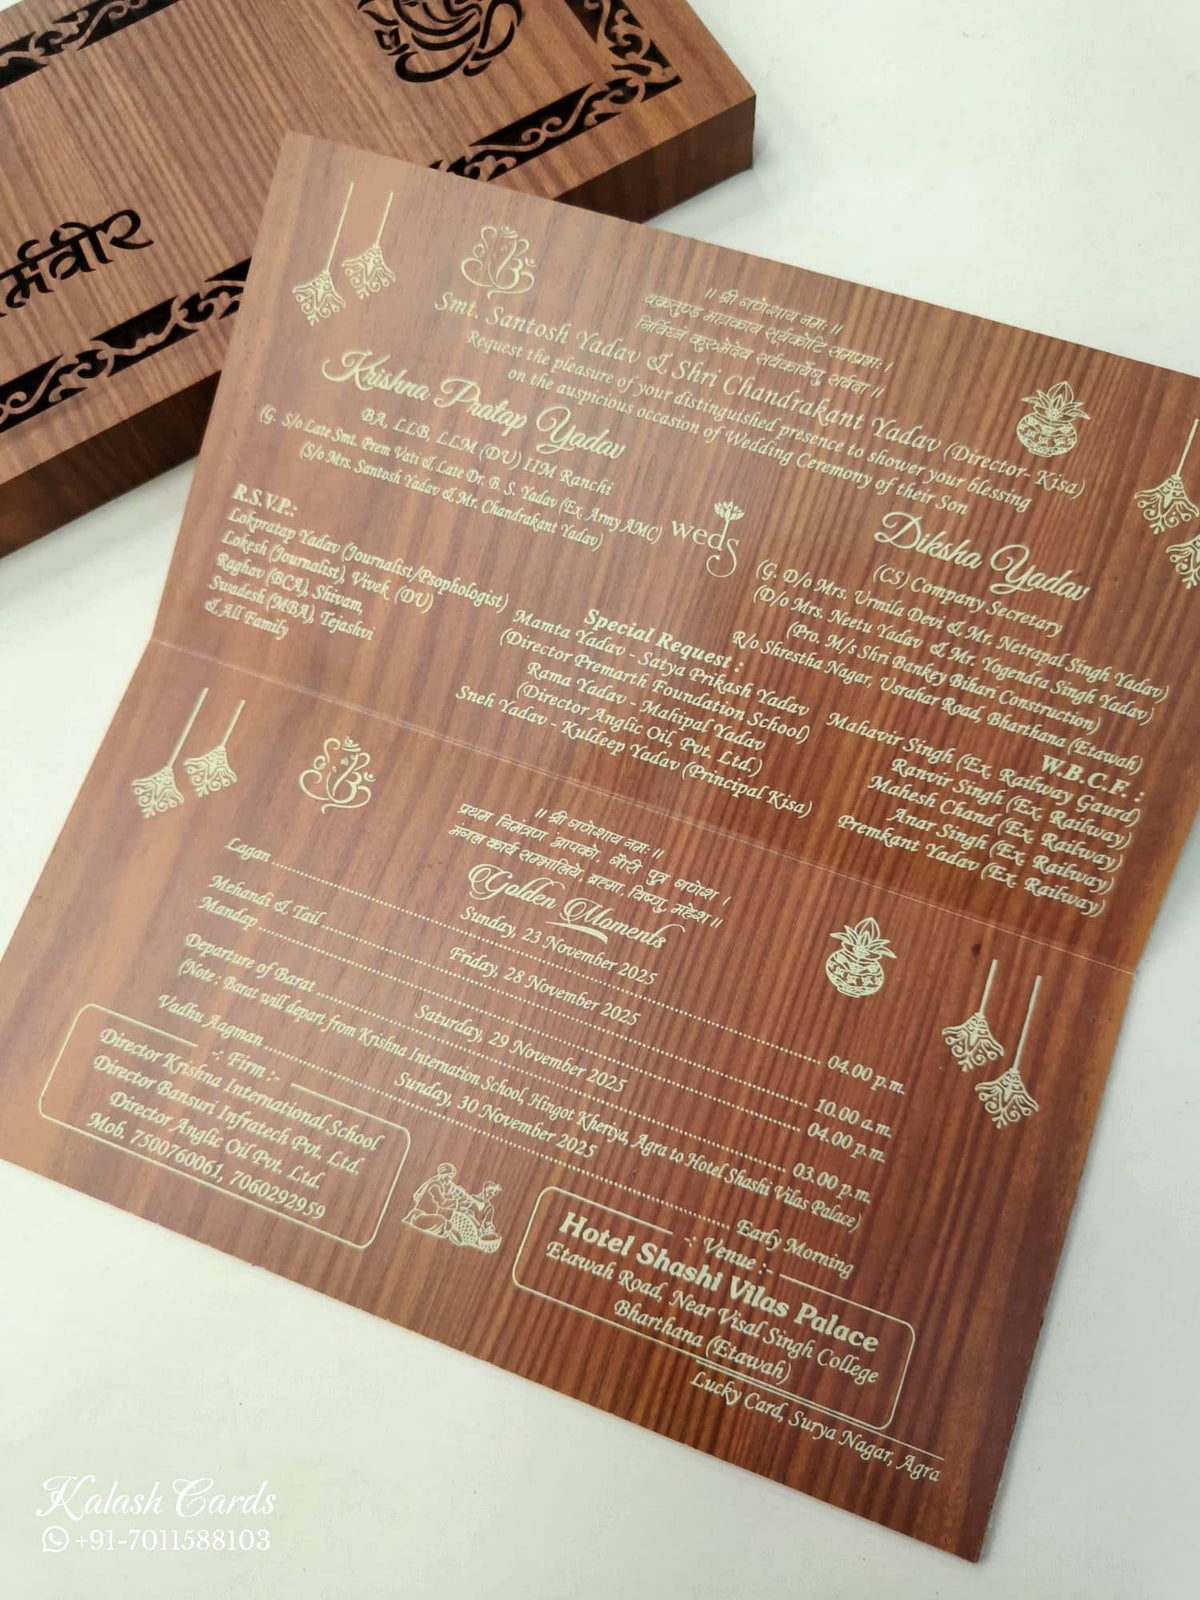 र्मवीर
॥ श्री गणेशाय नमः ॥
वक्रतुण्ड महाकाय सूर्यकोटि समप्रभः।
निर्विघ्नं कुरुमेदेव सर्वकार्येषु सर्वदा॥
Smt. Santosh Yadav & Shri Chandrakant Yadav (Director- Kisa)
Request the pleasure of your distinguished presence to shower your blessing
on the auspicious occasion of Wedding Ceremony of their Son
Krishna Pratap Yadav
BA, LLB, LLM (DU) IIM Ranchi
(G. S/o Late Smt. Prem Vati & Late Dr. B. S. Yadav (Ex. Army AMC)
(S/o Mrs. Santosh Yadav & Mr. Chandrakant Yadav)
weds
Diksha Yadav
(CS) Company Secretary
(G. D/o Mrs. Urmila Devi & Mr. Netrapal Singh Yadav)
(D/o Mrs. Neetu Yadav & Mr. Yogendra Singh Yadav)
(Pro. M/s Shri Bankey Bihari Construction)
R/o Shrestha Nagar, Usrahar Road, Bharthana (Etawah)
R.S.V.P.:
Lokpratap Yadav (Journalist/Psophologist)
Lokesh (Journalist), Vivek (DU)
Raghav (BCA), Shivam,
Swadesh (MBA), Tejashvi
& All Family
Special Request :
Mamta Yadav - Satya Prikash Yadav
(Director Premarth Foundation School)
Rama Yadav - Mahipal Yadav
(Director Anglic Oil, Pvt. Ltd.)
Sneh Yadav - Kuldeep Yadav (Principal Kisa)
W.B.C.F. :
Mahavir Singh (Ex. Railway Gaurd)
Ranvir Singh (Ex. Railway)
Mahesh Chand (Ex. Railway)
Anar Singh (Ex. Railway)
Premkant Yadav (Ex. Railway)
॥ श्री गणेशाय नमः ॥
प्रथम निमंत्रण आपको, गौरी पुत्र गणेश ।
मंगल कार्य सम्भालिये ब्रह्मा, विष्णु, महेश ॥
Golden Moments
Lagan .......... Sunday, 23 November 2025 .......... 04.00 p.m.
Mehandi & Tail .......... Friday, 28 November 2025 .......... 10.00 a.m.
Mandap .......... 04.00 p.m.
Departure of Barat .......... Saturday, 29 November 2025 .......... 03.00 p.m.
(Note : Barat will depart from Krishna Internation School, Hingot Kheriya, Agra to Hotel Shashi Vilas Palace)
Vadhu Aagman .......... Sunday, 30 November 2025 .......... Early Morning
-: Firm :-
Director Krishna International School
Director Bansuri Infratech Pvt. Ltd.
Director Anglic Oil Pvt. Ltd.
Mob. 7500760061, 7060292959
-: Venue :-
Hotel Shashi Vilas Palace
Etawah Road, Near Visal Singh College
Bharthana (Etawah)
Lucky Card, Surya Nagar, Agra
Kalash Cards
+91-7011588103